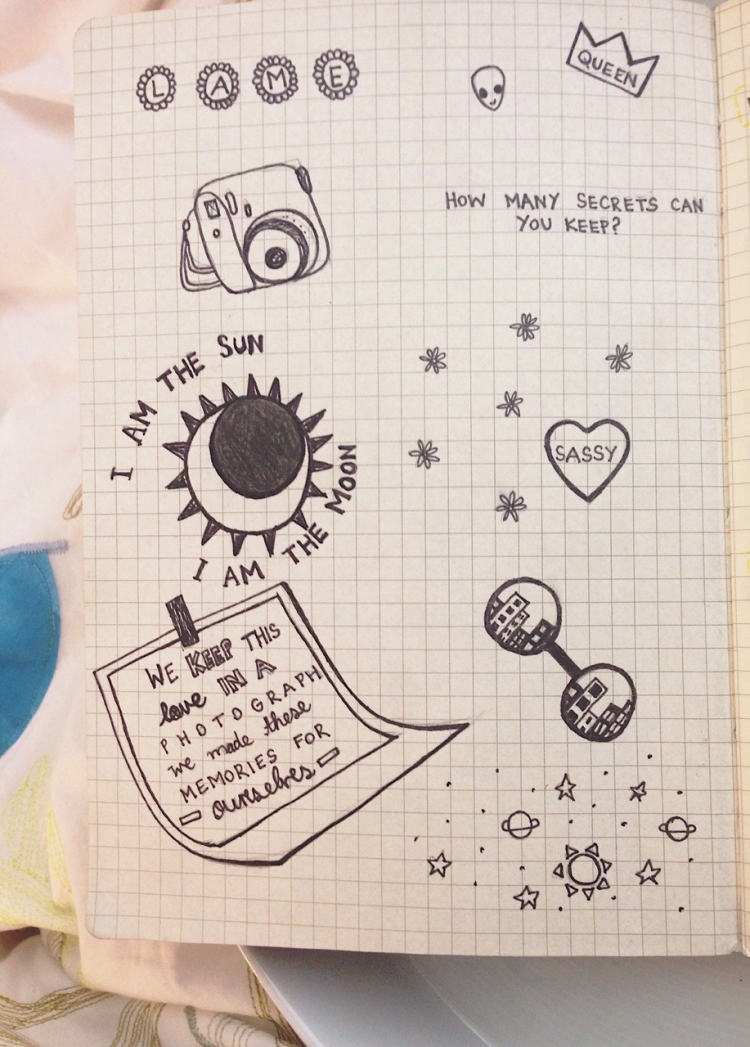 LAME
QUEEN
HOW MANY SECRETS CAN
YOU KEEP?
I AM THE SUN
I AM THE MOON
SASSY
WE KEEP THIS
love IN A
PHOTOGRAPH
we made these
MEMORIES FOR
ourselves